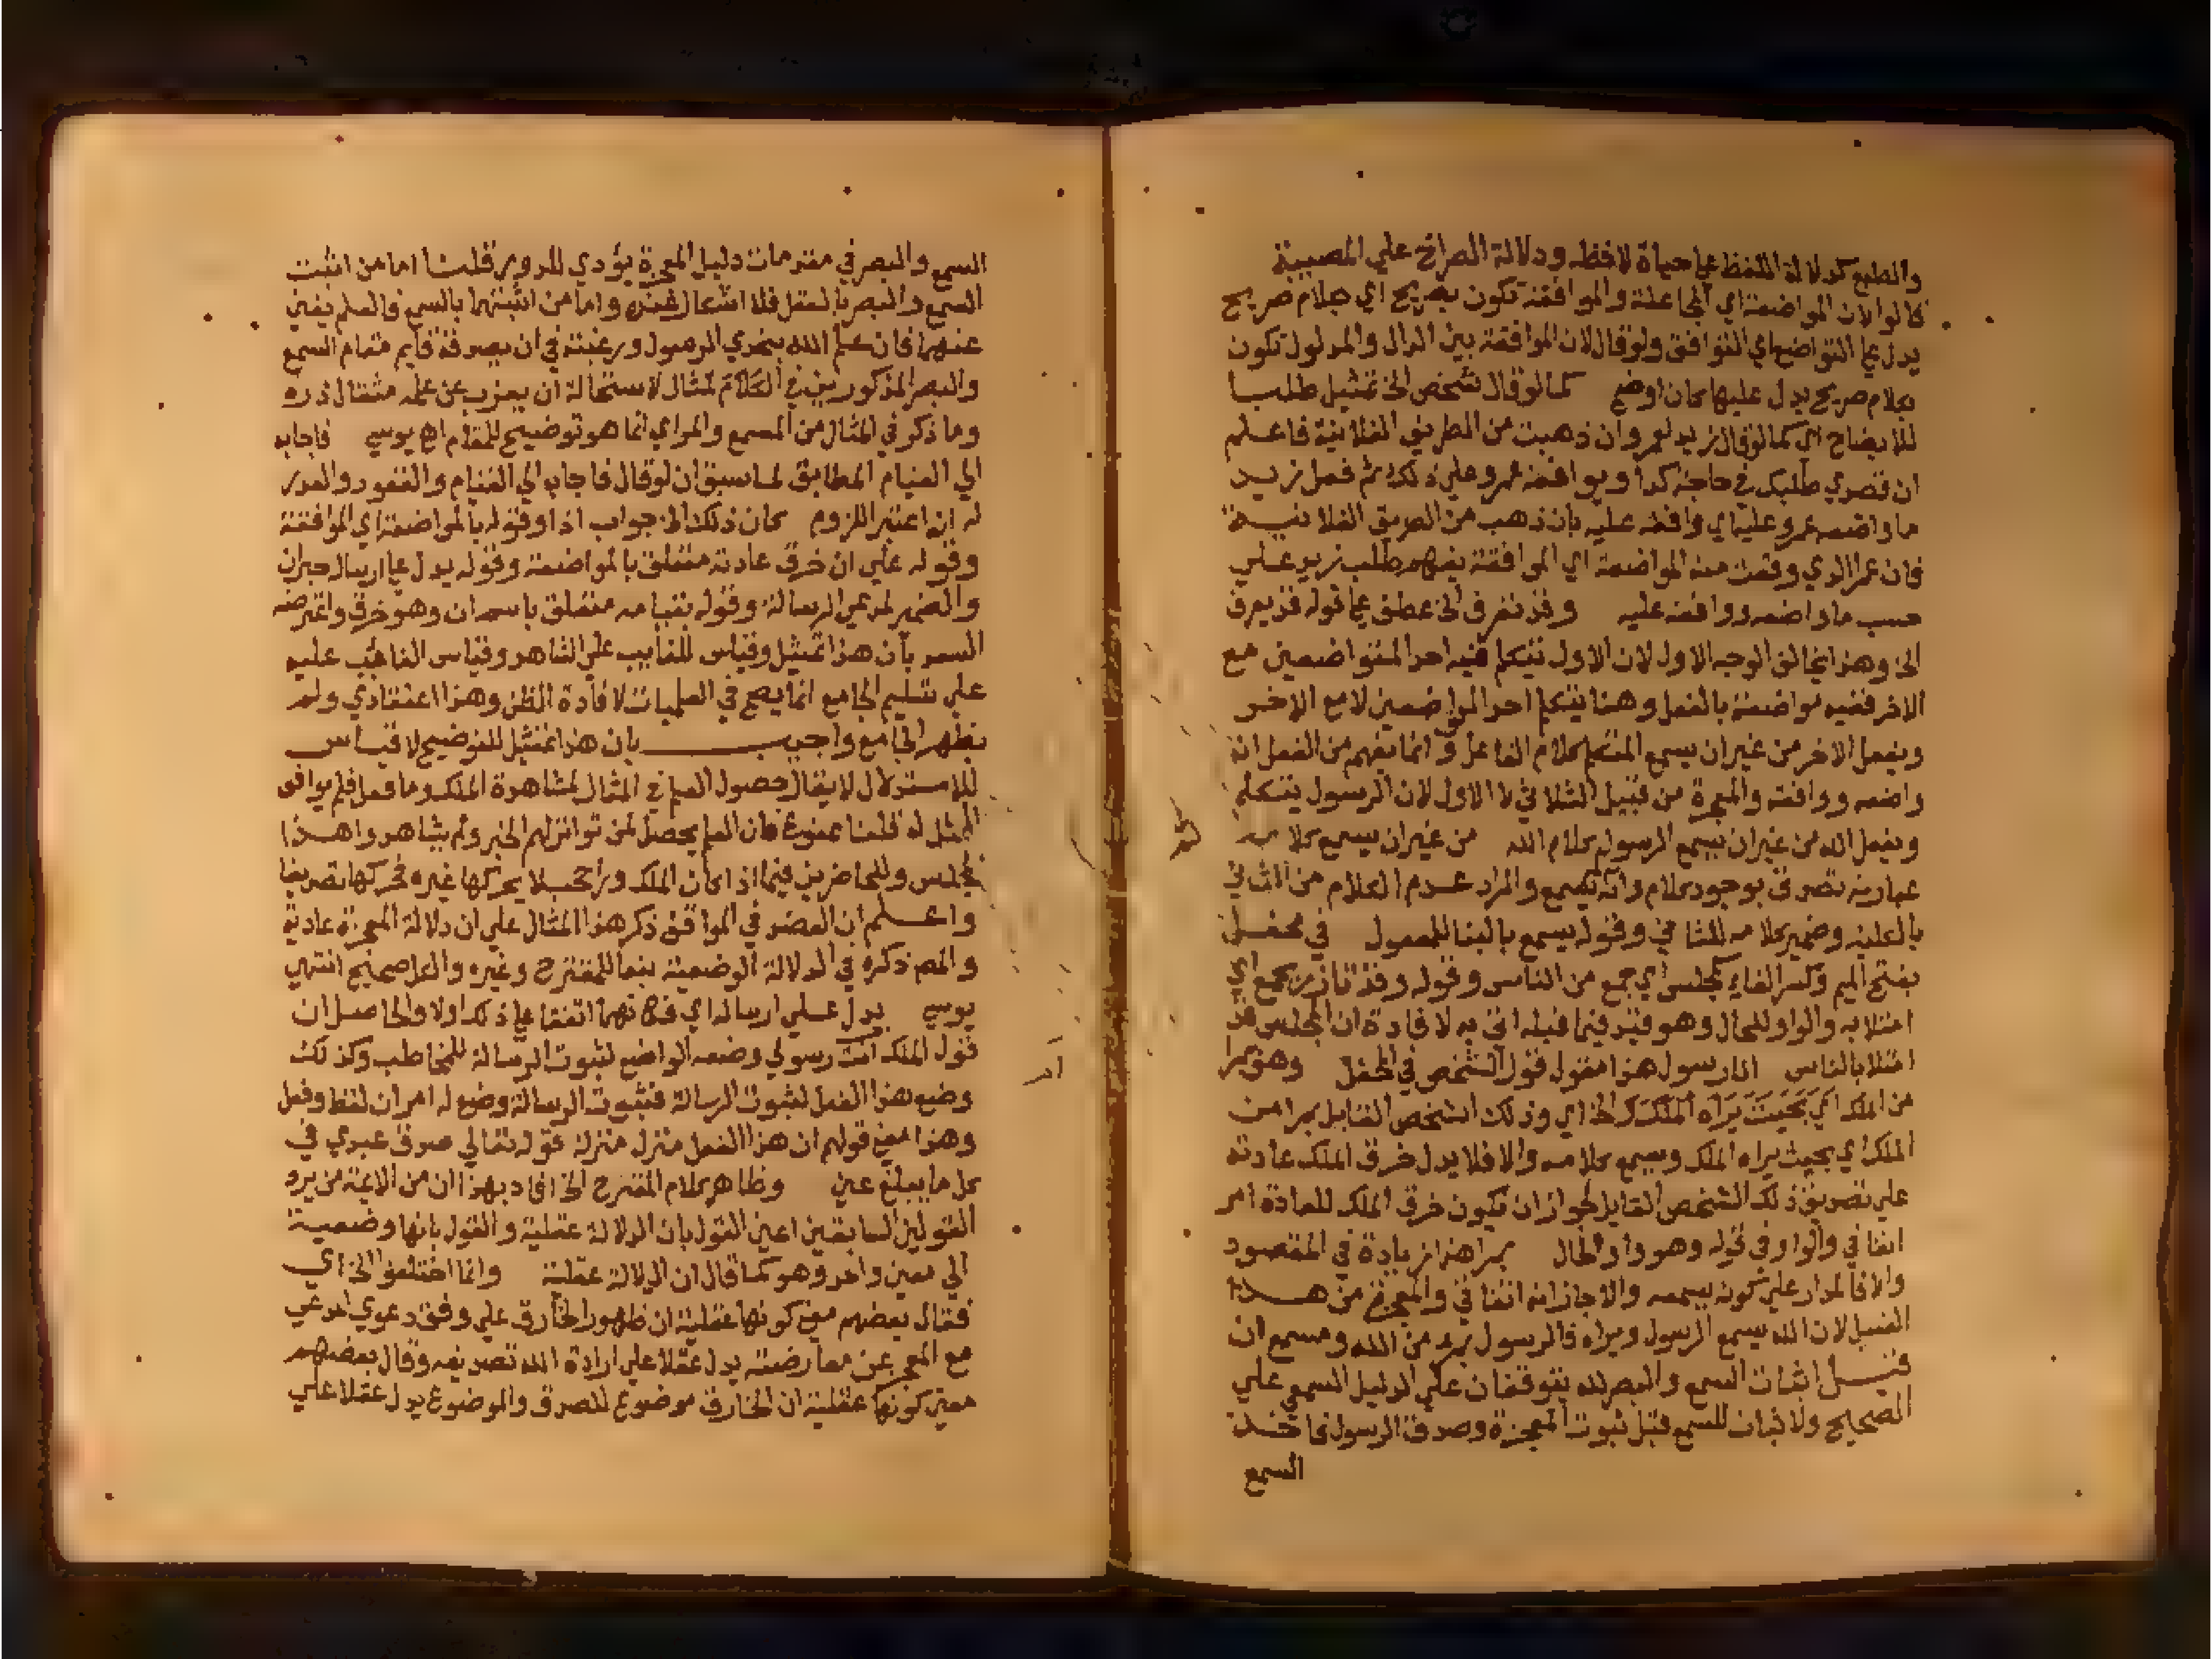 والطبع كدلالة اللفظ على حياة لافظه ودلالة الصراخ على المصيبة
قالوا لان المواضعة اي الجاعلة والموافقة تكون بصريح اي كلام صريح
يدل على التواضع اي التوافق ولو قال لان الموافقة بين الدال والمدلول تكون
بكلام صريح يدل عليها كان اوضح كما لو قال شخص الخ تمثيل طلبا
للايضاح اي كما لو قال زيد لعمرو ان ذهبت من الطريق الفلانية فاعلم
ان قصدي طلبك في حاجة كذا ويوافقه عمرو على ذلك ثم فعل زيد
ما واضعه عمرو عليه اي وافقه عليه بان ذهب من الطريق الفلانية
فان عمرا الذي وقعت معه المواضعة اي الموافقة يفهم طلب زيد علي
حسب ما واضعه ووافقه عليه وقد تعرف الخ عطف على قوله قد يعرف
الخ وهذا يخالف الوجه الاول لان الاول يتكلم فيه احد المتواضعين مع
الاخر ففيه مواضعة بالفعل وهنا يتكلم احد المواضعين لا مع الاخر
ويفعل الاخر من غير ان يسمع المتكلم كلام الفاعل وانما يفهم من الفعل انه
واضعه ووافقه والمعجزة من قبيل الثاني لا الاول لان الرسول يتكلم
ويفعل الله من غير ان يسمع الرسول كلام الله من غير ان يسمع كلامه
عبارته تصدق بوجود كلام وانه لم يسمع والمراد عدم الكلام من الثاني
وضمير كلامه للثاني وقوله يسمع بالبنا للمفعول في محفل
بفتح الميم وكسر الفاء كمجلس اي جمع من الناس وقوله وقد تازر بجمع اي
امتلا به والواو للحال وهو قيد فيما قبله اتى به لافادة ان المجلس قد
امتلا بالناس انا رسول هذا مقول قول الشخص في المحفل وهو بمرا
من الملك اي بحيث يراه الملك الخ اي وذلك الشخص القايل بمرا من
الملك اي بحيث يراه الملك ويسمع كلامه والا فلا يدل خرق الملك عادته
على تصديق ذلك الشخص القايل لجواز ان يكون خرق الملك للعادة امر
اتفاقي والواو في قوله وهو واو الحال بمرا هذا زيادة في المقصود
والا فالمدار على كونه يسمعه والا جاز انه اتفاقي والمعجزة من هذا
القبيل لان الله يسمع الرسول ويراه فالرسول بمرء من الله ومسمع ان
قيل اثبات السمع والبصر لله يتوقفان على الدليل السمعي علي
الصحيح ولا اثبات للسمع قبل ثبوت المعجزة وصدق الرسول فاخذ
السمع
السمع والبصر في مقدمات دليل المعجزة يؤدي للدور قلنا اما من اثبت
السمع والبصر بالعقل فلا اشكال عنده واما من اثبتهما بالسمع فالعلم يغني
عنهما فان علم الله بتحدي الرسول ورغبته في ان يصدقه قايم مقام السمع
والبصر المذكورين في الكلام لمثال لاستحالة ان يعزب عن علمه مثقال ذره
وما ذكر في المثال من المسمع والمراي انما هو توضيح للمقام اه يوسي فاجابه
الي القيام المطابق لما سبق ان لو قال فاجابه الي القيام والقعود والعدر
له انه اعتبر اللزوم كان ذلك الخ جواب اذا وقوله بالمواضعة اي الموافقة
وقوله على ان خرق عادته متعلق بالمواضعة وقوله يدل على ارساله خبر ان
والضمير لمدعي الرسالة وقوله بقيامه متعلق باسم ان وهو خرق واعترضه
السعد بان هذا تمثيل وقياس للغايب علي الشاهد وقياس الغايب عليه
علي تسليم الجامع انما يصح في العمليات لافادة الظن وهذا اعتقادي ولم
يظهر الجامع واجيب بان هذا تمثيل للتوضيح لا قياس
للاستدلال لا يقال حصول العلم في المثال لمشاهدة الملك وما فعل فلم يوافق
الممثل له قلنا ممنوع فان العلم يحصل لمن تواتر لهم الخبر ولم يشاهدوا هذا
المجلس وللحاضرين فيما اذا كان الملك وراحجب لا يحركها غيره فحركها تصديقا
واعلم ان العضد في المواقف ذكر هذا المثال علي ان دلالة المعجزة عادية
والمص ذكره في الدلالة الوضعية تبعا للمقترح وغيره والكل صحيح انتهي
يوسي يدل علي ارساله اي فكانهما اتفقا على ذلك اولا والحاصل ان
قول الملك انت رسولي وضعه الواضع لثبوت الرسالة للمخاطب وكذلك
وضع هذا الفعل لثبوت الرسالة فثبوت الرسالة وضع له امران لفظ وفعل
وهذا معنى قولهم ان هذا الفعل منزل منزلة قوله تعالي صدق عبدي في
كل ما يبلغ عني وظاهر كلام المقترح الخ افاد بهذا ان من الايمة من يرد
القولين السابقين اعني القول بان الدلالة عقلية والقول بانها وضعية
الي معني واحد وهو كما قال ان الدلالة عقلية وانما اختلفوا الخ اي
فقال بعضهم معنى كونها عقلية ان ظهور الخارق علي وفق دعوي المدعي
مع العجز عن معارضته يدل عقلا علي ارادة الله تصديقه وقال بعضهم
معنى كونها عقلية ان الخارق موضوع للصدق والموضوع يدل عقلا علي